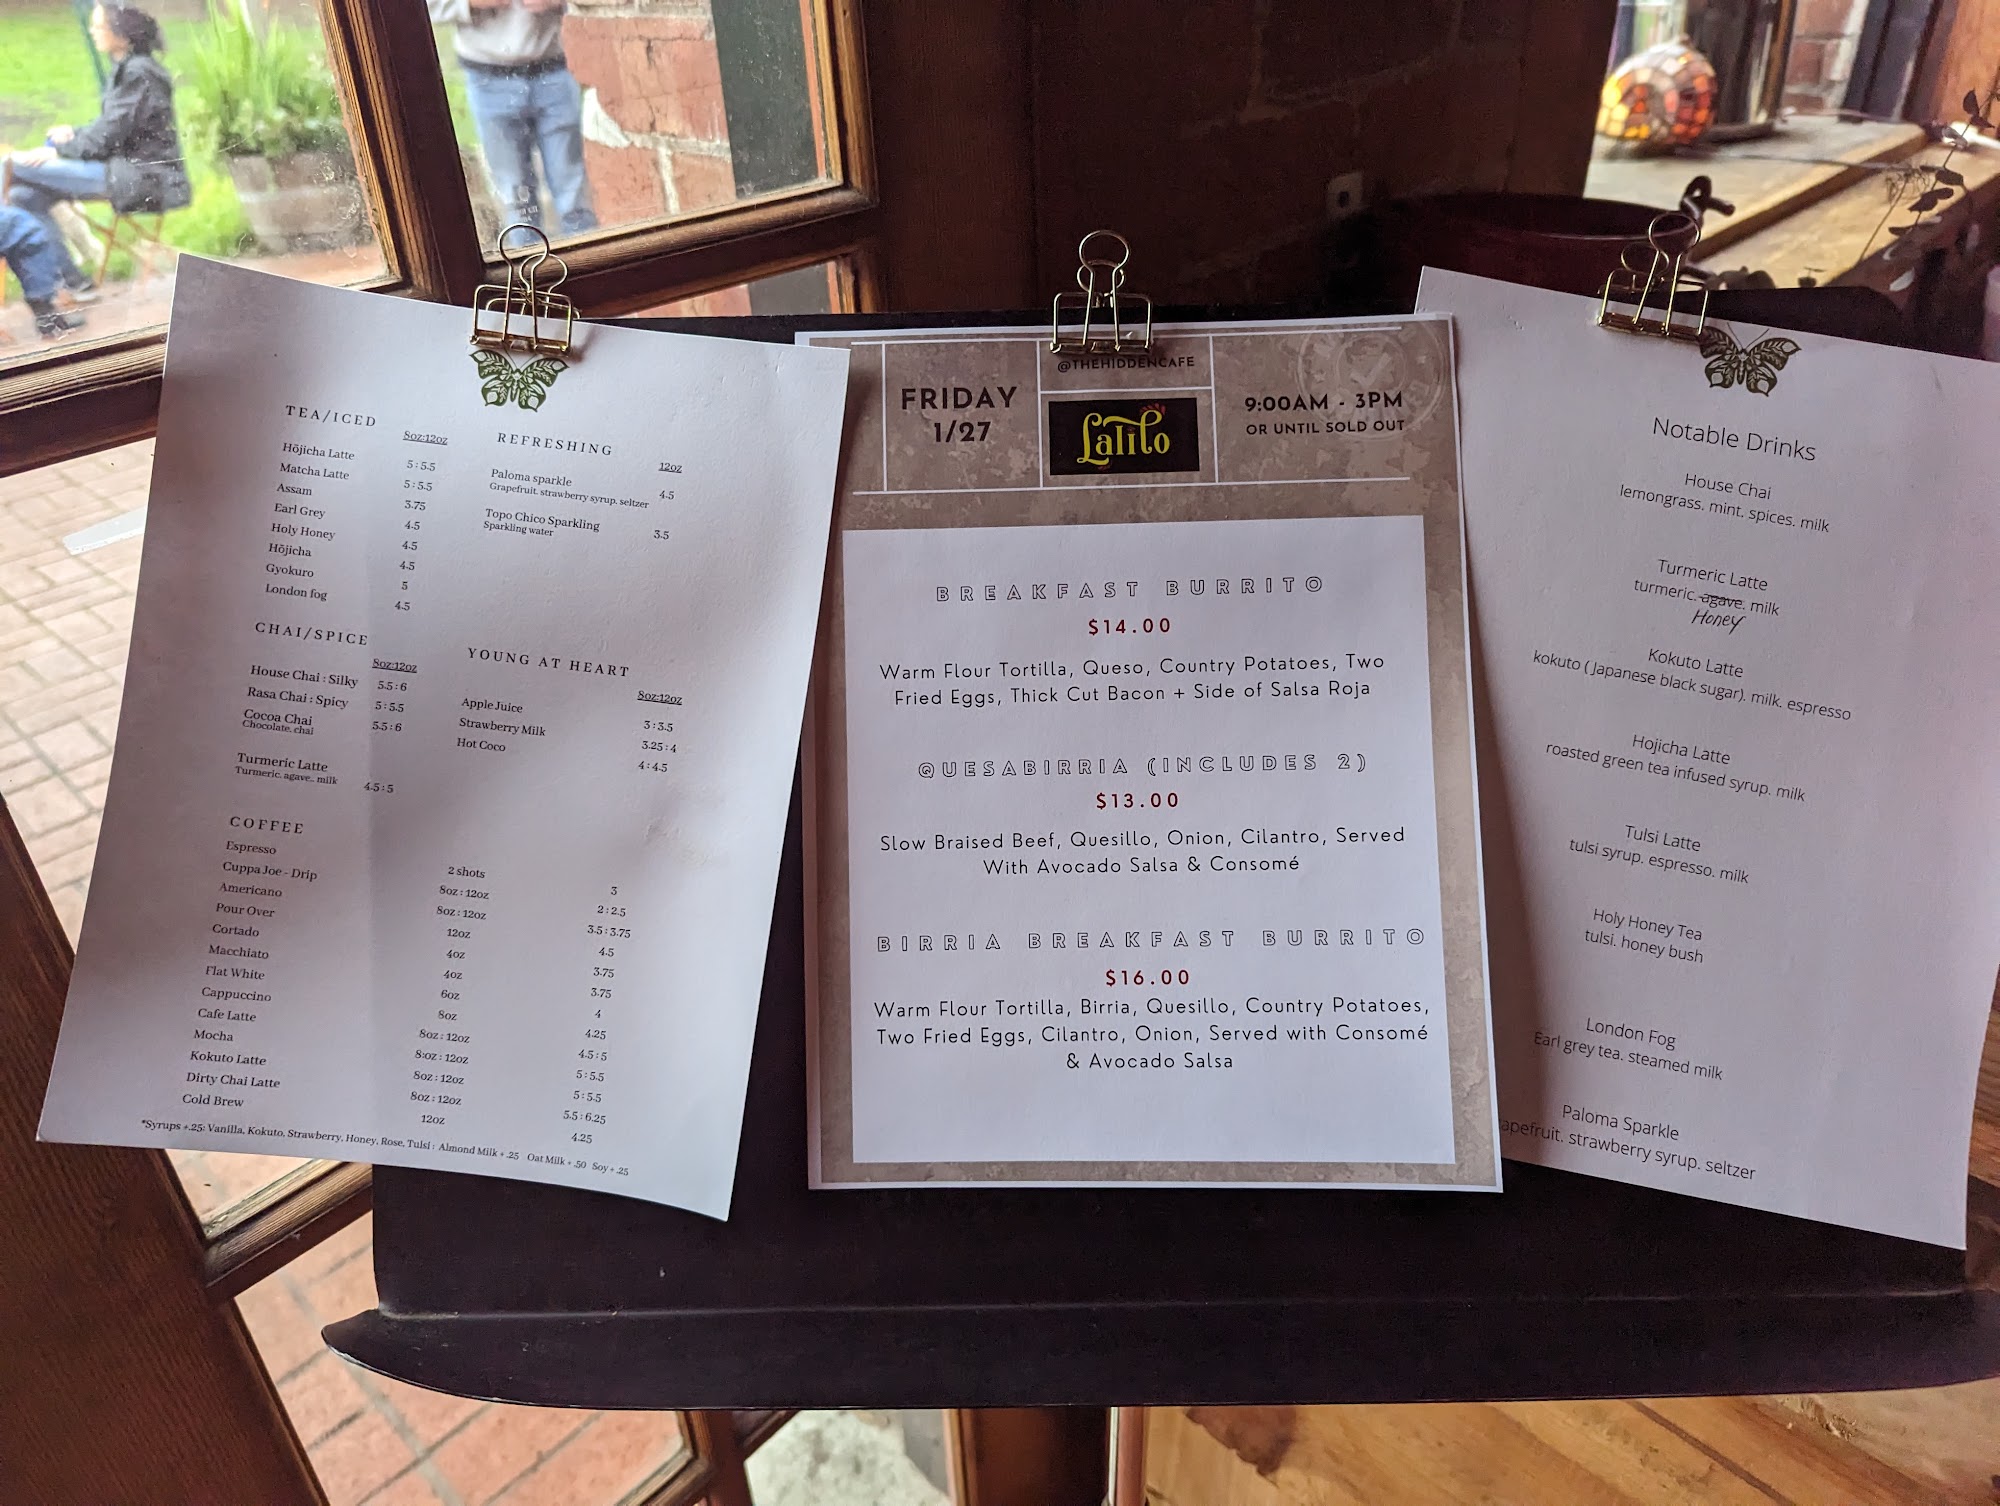 TEA/ICED
8oz:12oz
Hōjicha Latte 5 : 5.5
Matcha Latte 5 : 5.5
Assam 3.75
Earl Grey 4.5
Holy Honey 4.5
Hōjicha 4.5
Gyokuro 5
London fog 4.5
REFRESHING
12oz
Paloma sparkle 4.5
Grapefruit. strawberry syrup. seltzer
Topo Chico Sparkling 3.5
Sparkling water
CHAI/SPICE
8oz:12oz
House Chai : Silky 5.5 : 6
Rasa Chai : Spicy 5 : 5.5
Cocoa Chai 5.5 : 6
Chocolate. chai
Turmeric Latte
Turmeric. agave.. milk 4.5 : 5
YOUNG AT HEART
8oz:12oz
Apple Juice 3 : 3.5
Strawberry Milk 3.25 : 4
Hot Coco 4 : 4.5
COFFEE
Espresso 2 shots 3
Cuppa Joe - Drip 8oz : 12oz 2 : 2.5
Americano 8oz : 12oz 3.5 : 3.75
Pour Over 12oz 4.5
Cortado 4oz 3.75
Macchiato 4oz 3.75
Flat White 6oz 4
Cappuccino 8oz 4.25
Cafe Latte 8oz : 12oz 4.5 : 5
Mocha 8:oz : 12oz 5 : 5.5
Kokuto Latte 8oz : 12oz 5 : 5.5
Dirty Chai Latte 8oz : 12oz 5.5 : 6.25
Cold Brew 12oz 4.25
*Syrups +.25: Vanilla, Kokuto, Strawberry, Honey, Rose, Tulsi : Almond Milk + .25 Oat Milk + .50 Soy + .25
@THEHIDDENCAFE
FRIDAY
1/27
Lalito
9:00AM - 3PM
OR UNTIL SOLD OUT
BREAKFAST BURRITO
$14.00
Warm Flour Tortilla, Queso, Country Potatoes, Two
Fried Eggs, Thick Cut Bacon + Side of Salsa Roja
QUESABIRRIA (INCLUDES 2)
$13.00
Slow Braised Beef, Quesillo, Onion, Cilantro, Served
With Avocado Salsa & Consomé
BIRRIA BREAKFAST BURRITO
$16.00
Warm Flour Tortilla, Birria, Quesillo, Country Potatoes,
Two Fried Eggs, Cilantro, Onion, Served with Consomé
& Avocado Salsa
Notable Drinks
House Chai
lemongrass. mint. spices. milk
Turmeric Latte
turmeric. agave. milk
Honey
Kokuto Latte
kokuto ( Japanese black sugar). milk. espresso
Hojicha Latte
roasted green tea infused syrup. milk
Tulsi Latte
tulsi syrup. espresso. milk
Holy Honey Tea
tulsi. honey bush
London Fog
Earl grey tea. steamed milk
Paloma Sparkle
apefruit. strawberry syrup. seltzer